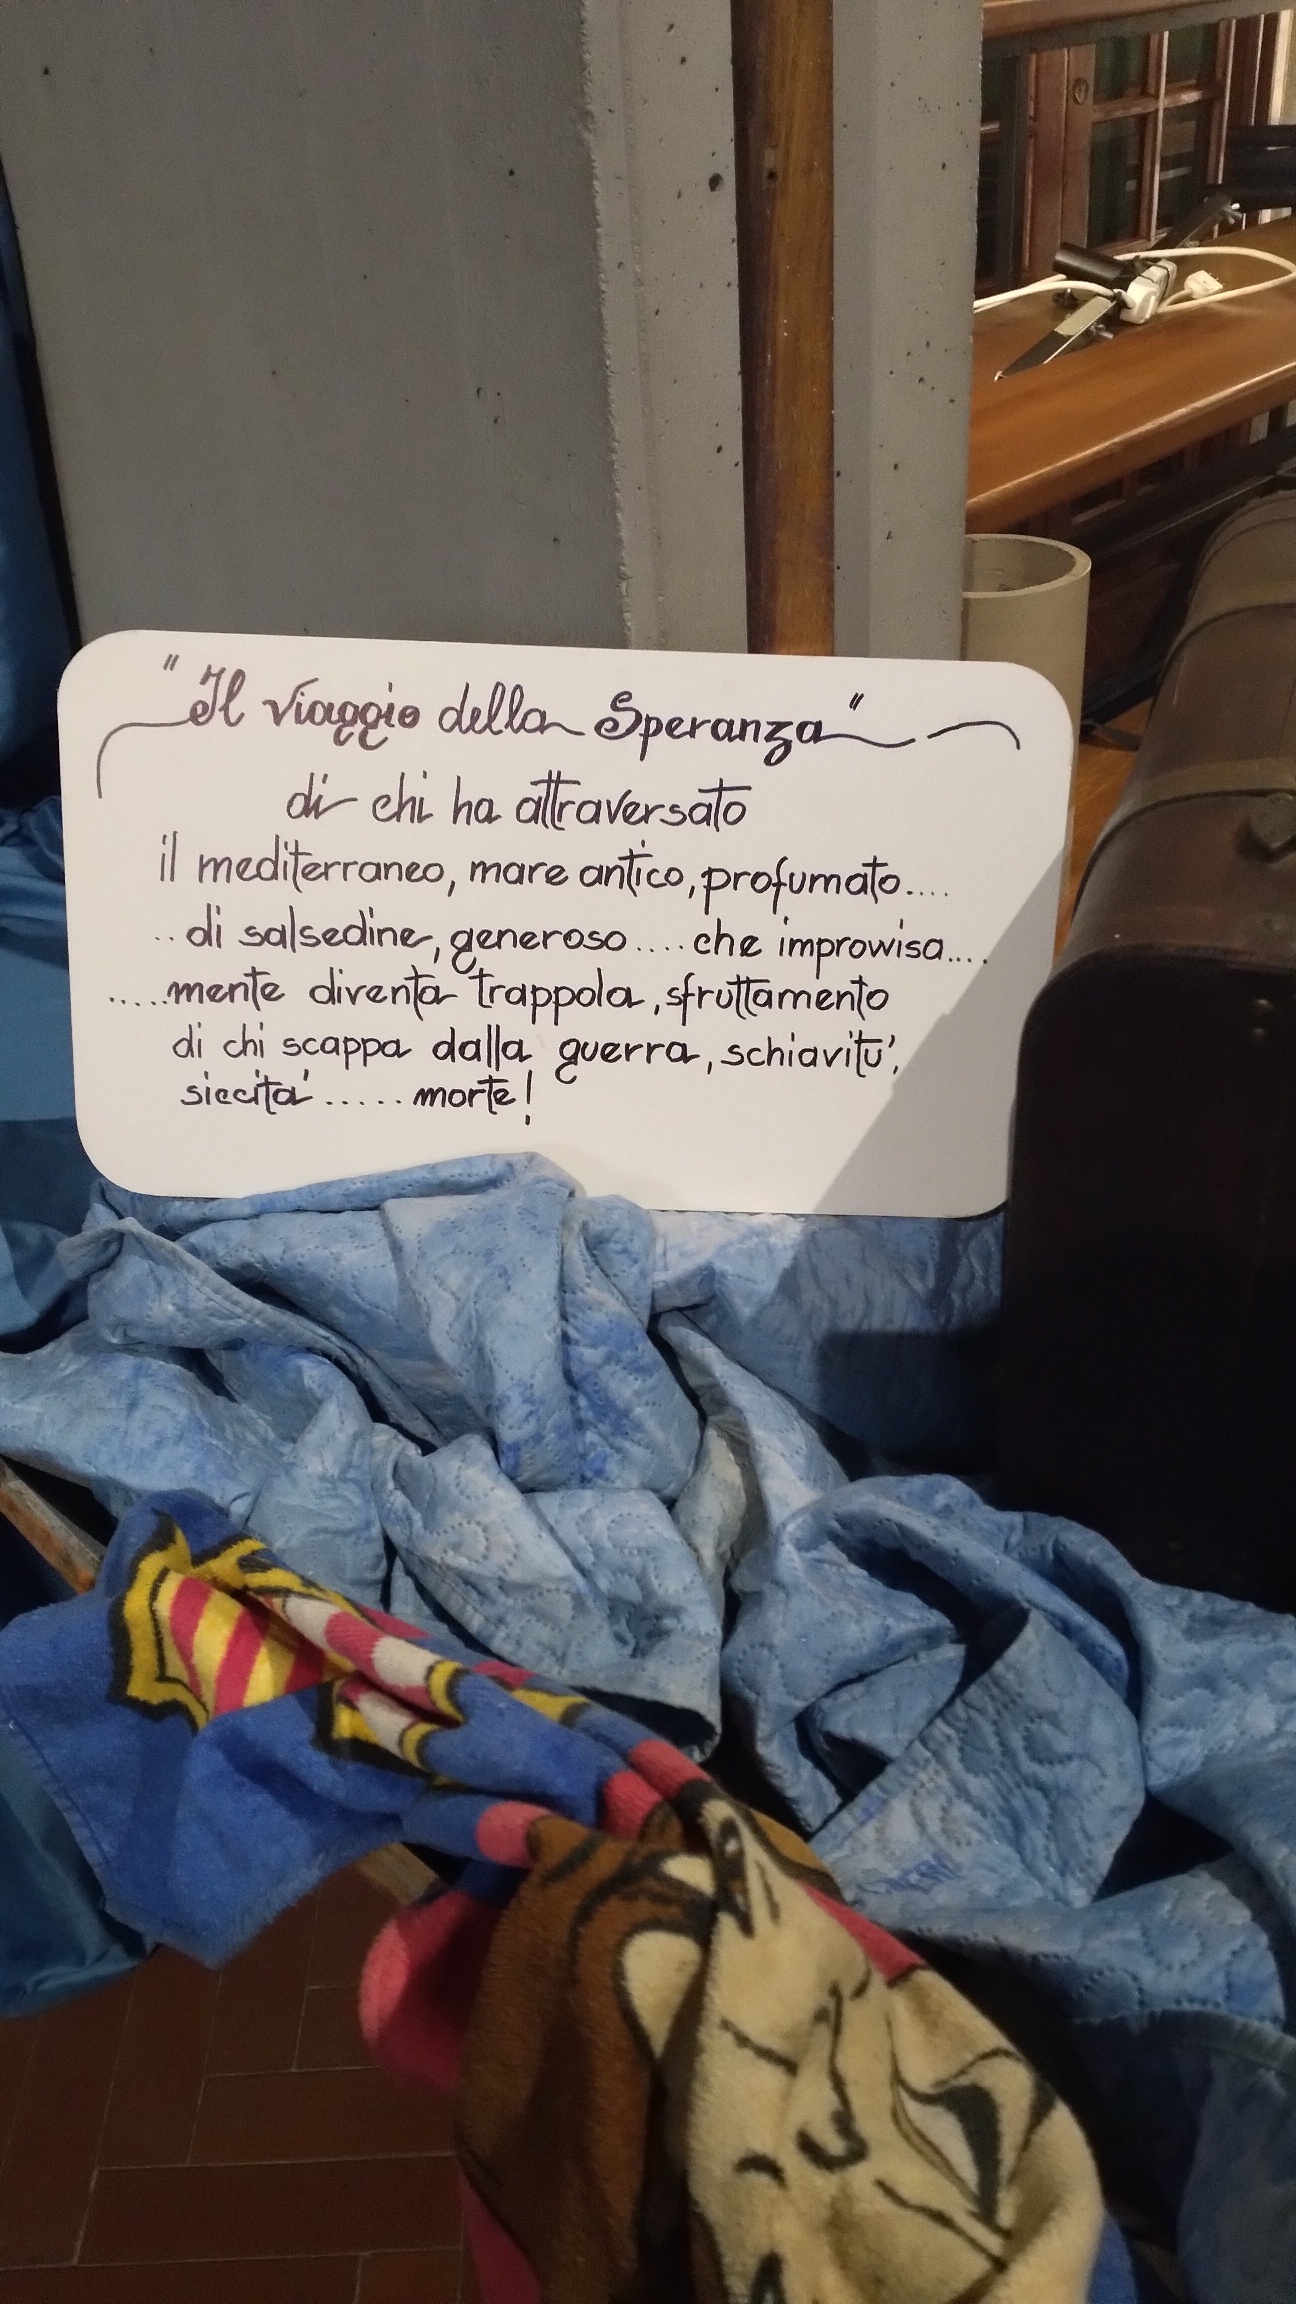 "Il Viaggio della Speranza"
di chi ha attraversato
il mediterraneo, mare antico, profumato....
..di salsedine, generoso....che improvvisa....
.....mente diventa trappola, sfruttamento
di chi scappa dalla guerra, schiavitu',
siccita'.....morte!